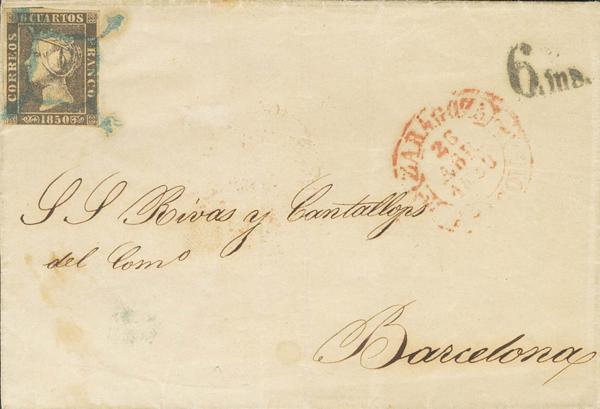 6 CUARTOS
CORREOS
FRANCO
1850
6.ms.
ZARAGOZA
26
ABR
1850
S S Rivas y Cantallops
del Comº
Barcelona